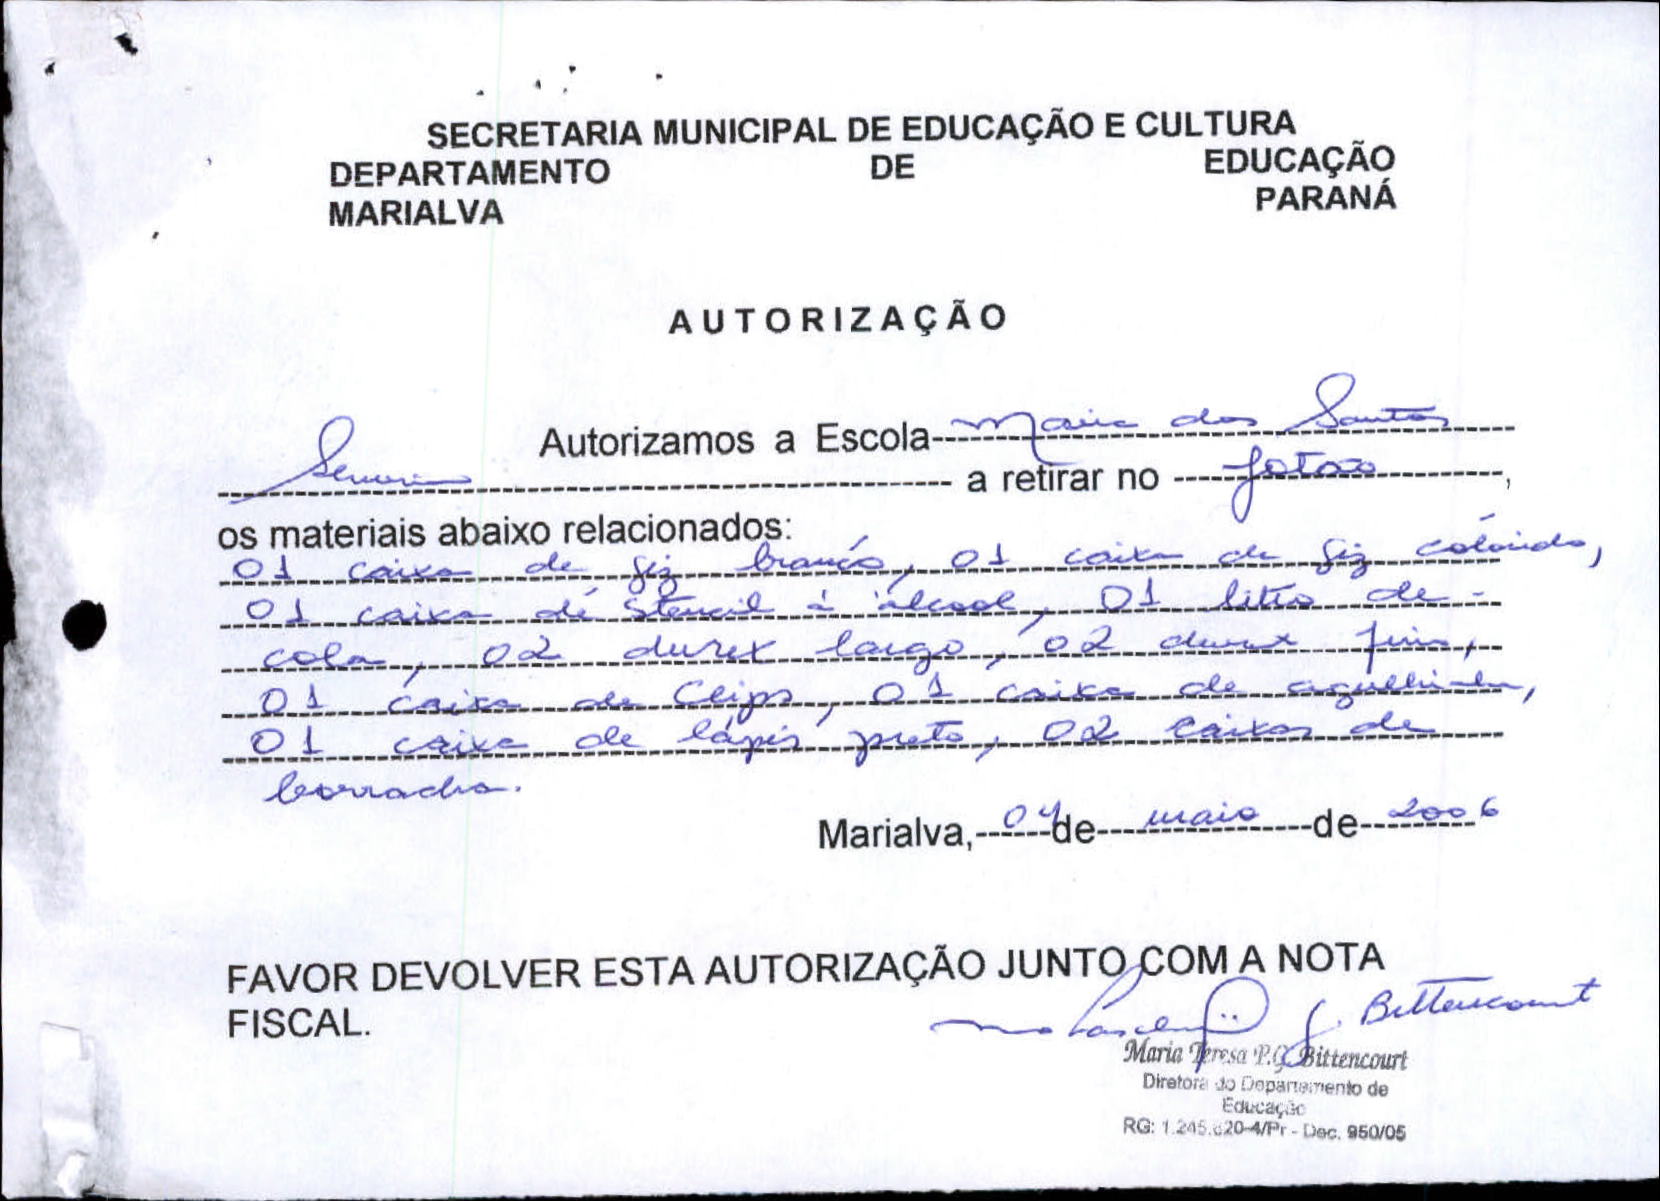 SECRETARIA MUNICIPAL DE EDUCAÇÃO E CULTURA
DEPARTAMENTO DE EDUCAÇÃO
MARIALVA PARANÁ
AUTORIZAÇÃO
Autorizamos a Escola Maria dos Santos
Severino a retirar no fotão,
os materiais abaixo relacionados:
01 caixa de giz branco, 01 caixa de giz colorido,
01 caixa de Stencil à álcool, 01 litro de
cola, 02 durex largo, 02 durex fino,
01 caixa de Clips, 01 caixa de agulhinha,
01 caixa de lápis preto, 02 caixas de
borracha.
Marialva, 04 de maio de 2006
FAVOR DEVOLVER ESTA AUTORIZAÇÃO JUNTO COM A NOTA
FISCAL.
Bittencourt
Maria Teresa P.G. Bittencourt
Diretora do Departamento de
Educação
RG: 1.245. 20-4/Pr - Dec. 950/05